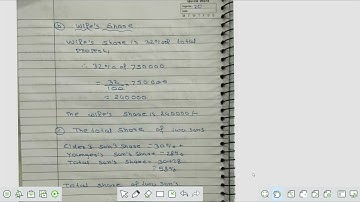 (b) Wife's Share
Wife's share is 32% of total
Property
∴ 32% of 750000
= 32/100 × 750000
= 240000
The wife's share is 240000/-
(c) The total share of two sons
Elder's son's share = 30% +
Younger's son's share = 28%
Total son's share = 30+28
= 58%
Total share of two son's